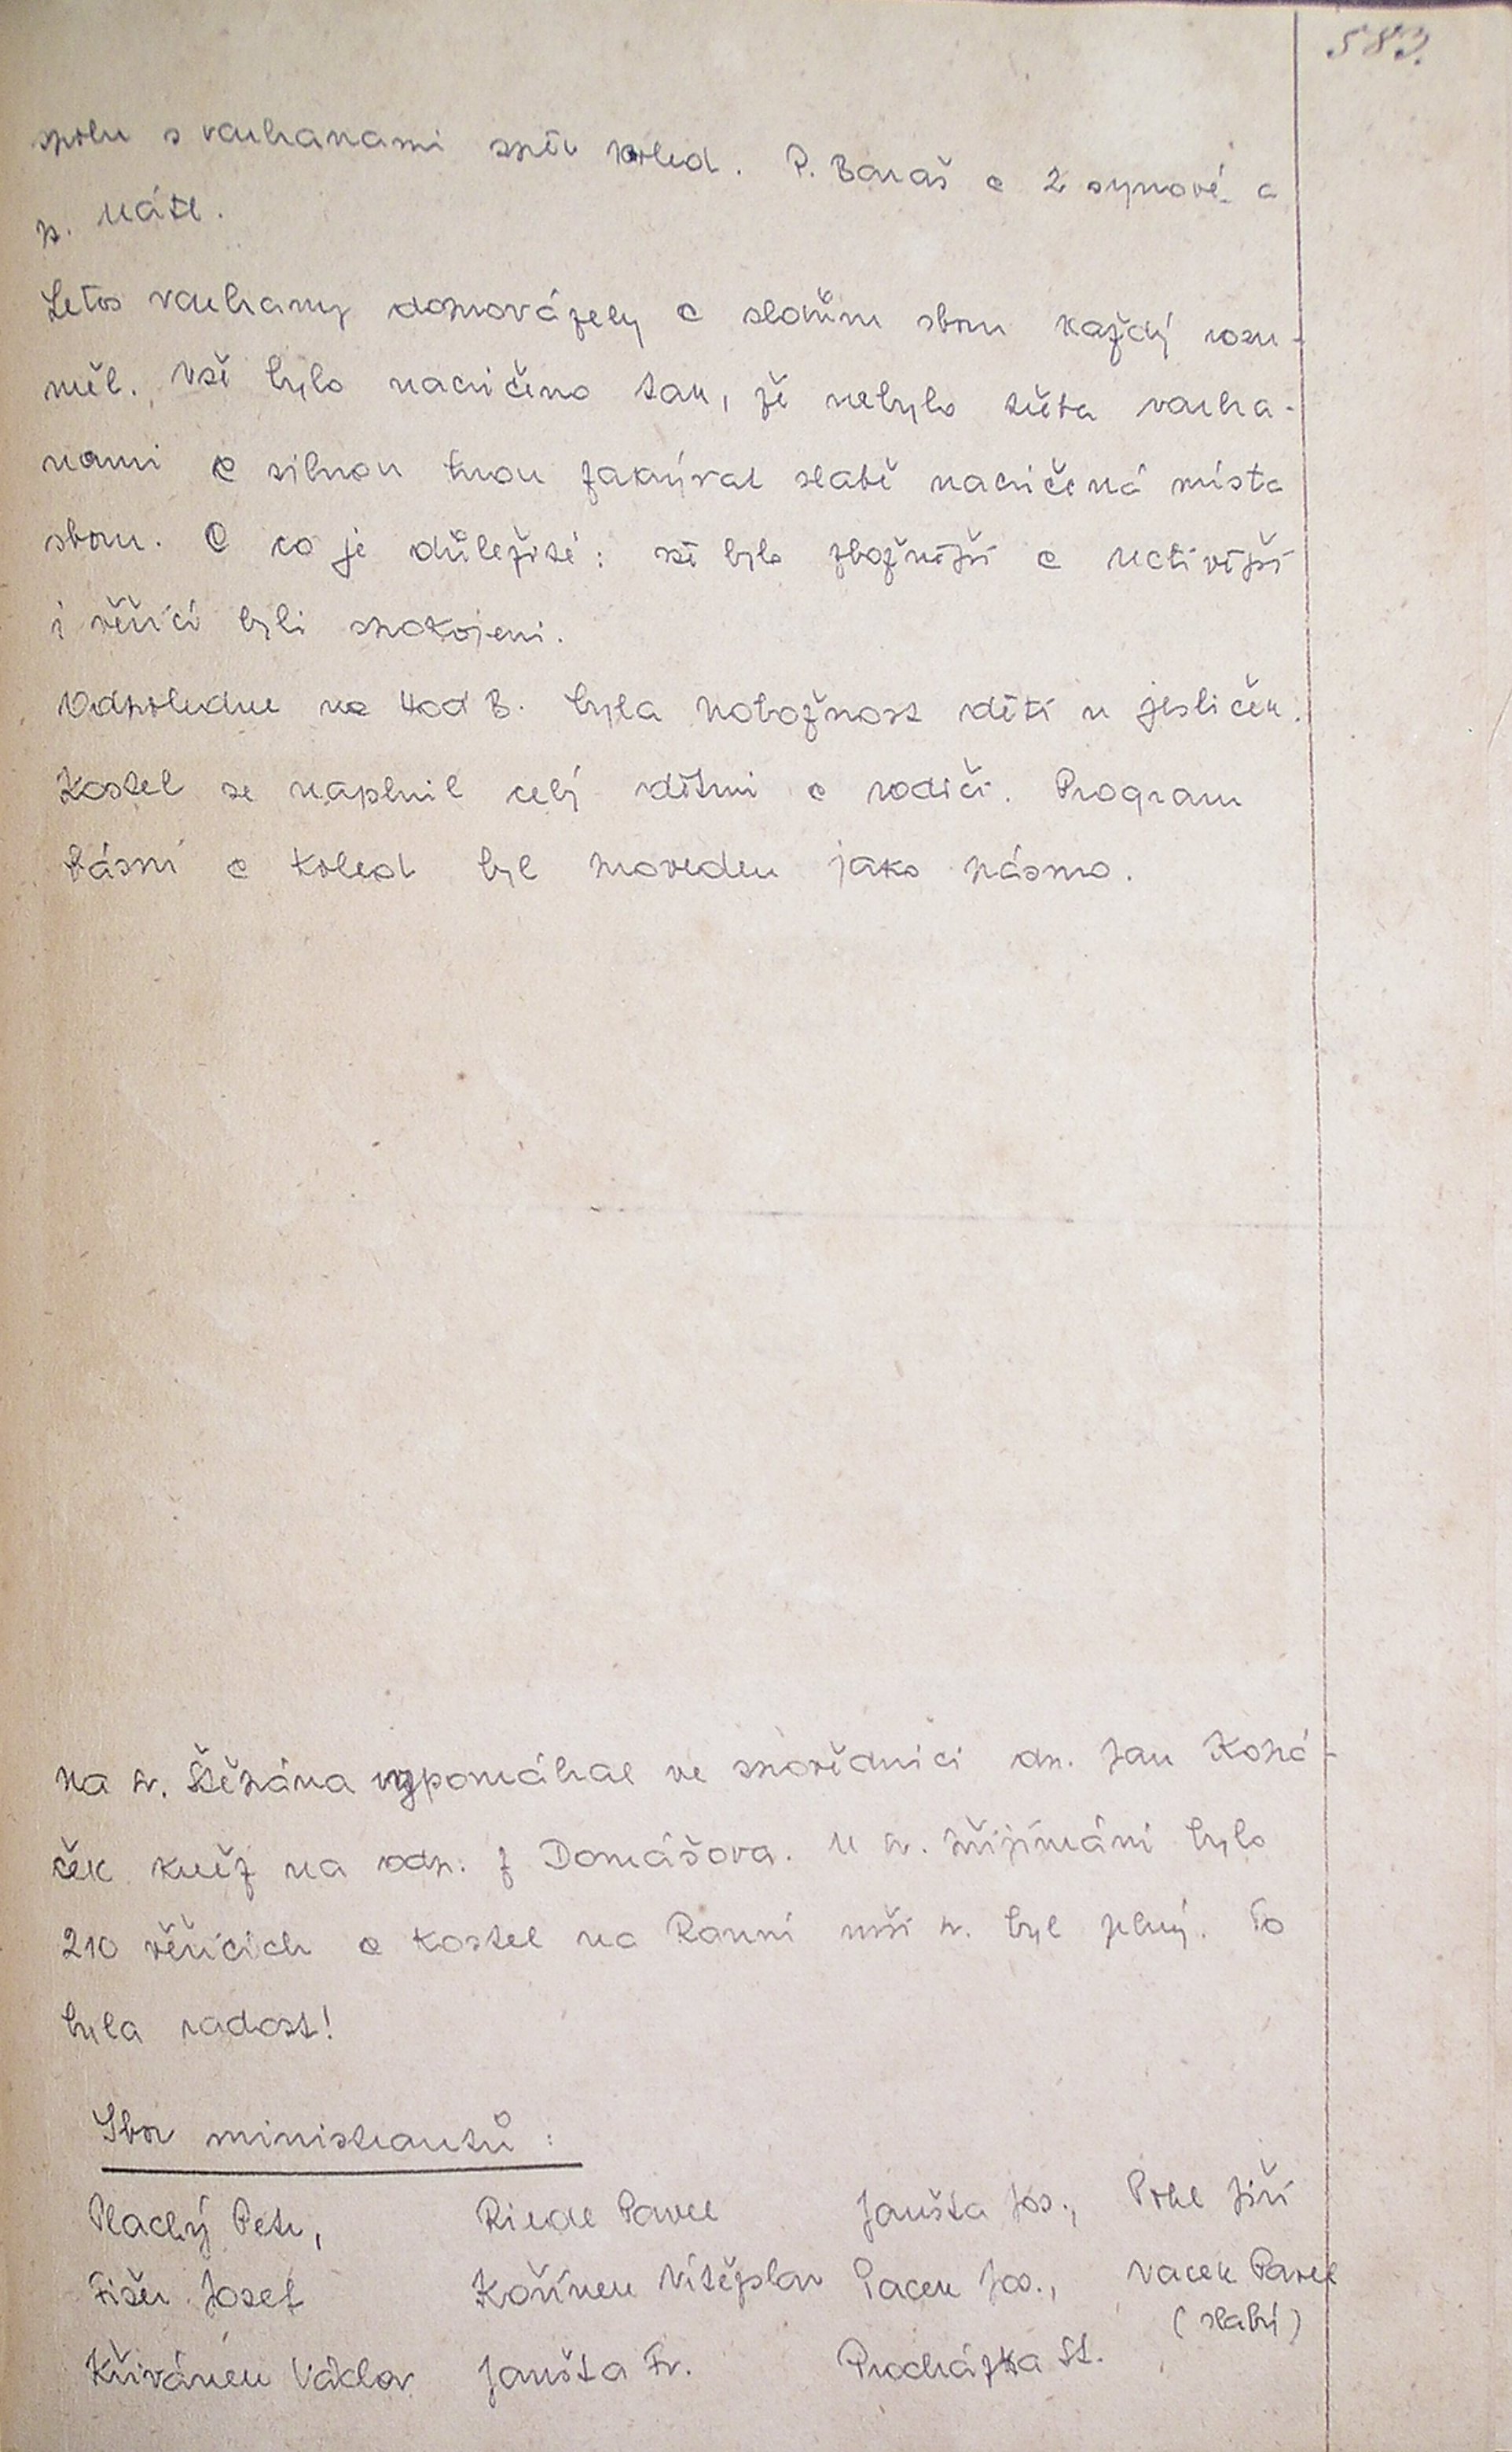 583.
spolu s varhanami zpěv koled. P. Baraš a 2 synové a
p. Mátl.
Letos varhany doprovázely a slovům sboru každý rozu-
měl. Vše bylo nacvičeno tak, že nebylo třeba varha-
nami a silnou hrou zakrývat slabě nacvičená místa
sboru. A co je důležité: vše bylo zbožnější a uctivější
i věřící byli spokojeni.
Odpoledne na Hod B. byla pobožnost dětí u jesliček.
Kostel se naplnil celý dětmi a rodiči. Program
básní a koled byl proveden jako pásmo.
Na sv. Štěpána vypomáhal ve zpovědnici dp. Jan Kopá-
ček kněz na odp. z Domášova. U sv. přijímání bylo
210 věřících a kostel na Ranní mši sv. byl plný. To
byla radost!
Sbor ministrantů:
Plachý Petr, Riedl Pavel Janšta Jos., Pohl Jiří
Fišer Josef Kořínek Vítězslav Pacek Jos., Vacek Pavel
(slabý)
Křivánek Václav Janšta Fr. Procházka St.